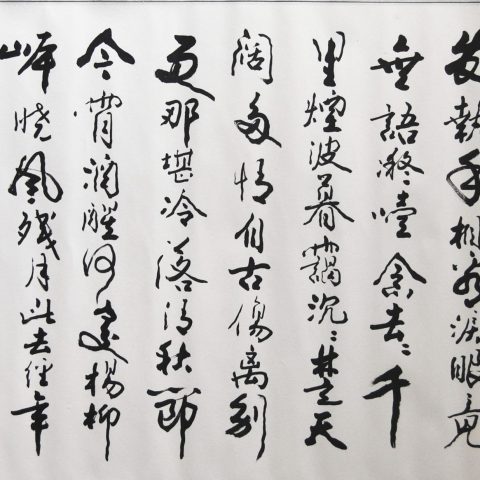 發執手相看淚眼竟
無語凝噎念去々千
里煙波暮靄沉々楚天
闊多情自古傷離別
更那堪冷落清秋節
今宵酒醒何處楊柳
岸曉風殘月此去經年